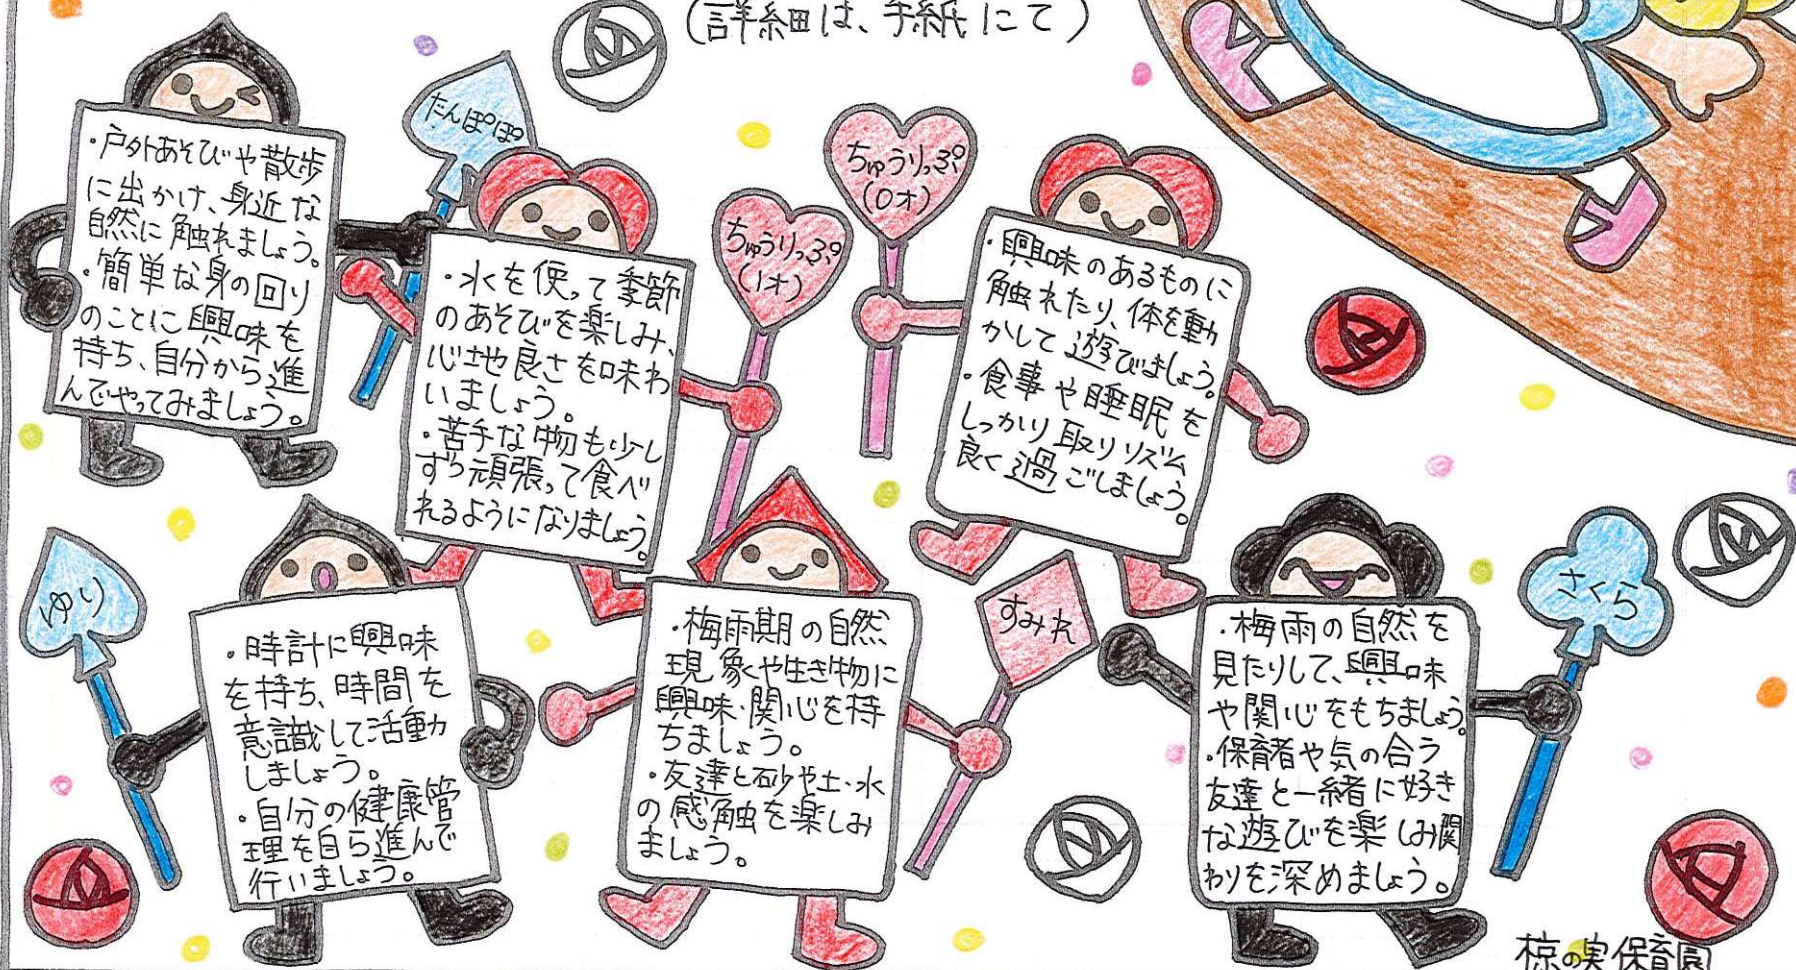 (詳細は、手紙にて)
たんぽぽ
・戸外あそびや散歩
に出かけ、身近な
自然に触れましょう。
・簡単な身の回り
のことに興味を
持ち、自分から進
んでやってみましょう。
ちゅうりっぷ
(1才)
・水を使って季節
のあそびを楽しみ、
心地良さを味わ
いましょう。
・苦手な物も少し
ずつ頑張って食べ
れるようになりましょう。
ちゅうりっぷ
(0才)
・興味のあるものに
触れたり、体を動
かして遊びましょう。
・食事や睡眠を
しっかり取りリズム
良く過ごしましょう。
ゆり
・時計に興味
を持ち、時間を
意識して活動
しましょう。
・自分の健康管
理を自ら進んで
行いましょう。
すみれ
・梅雨期の自然
現象や生き物に
興味・関心を持
ちましょう。
・友達と砂や土・水
の感触を楽しみ
ましょう。
さくら
・梅雨の自然を
見たりして、興味
や関心をもちましょう。
・保育者や気の合う
友達と一緒に好き
な遊びを楽しみ関
わりを深めましょう。
椋の実保育園